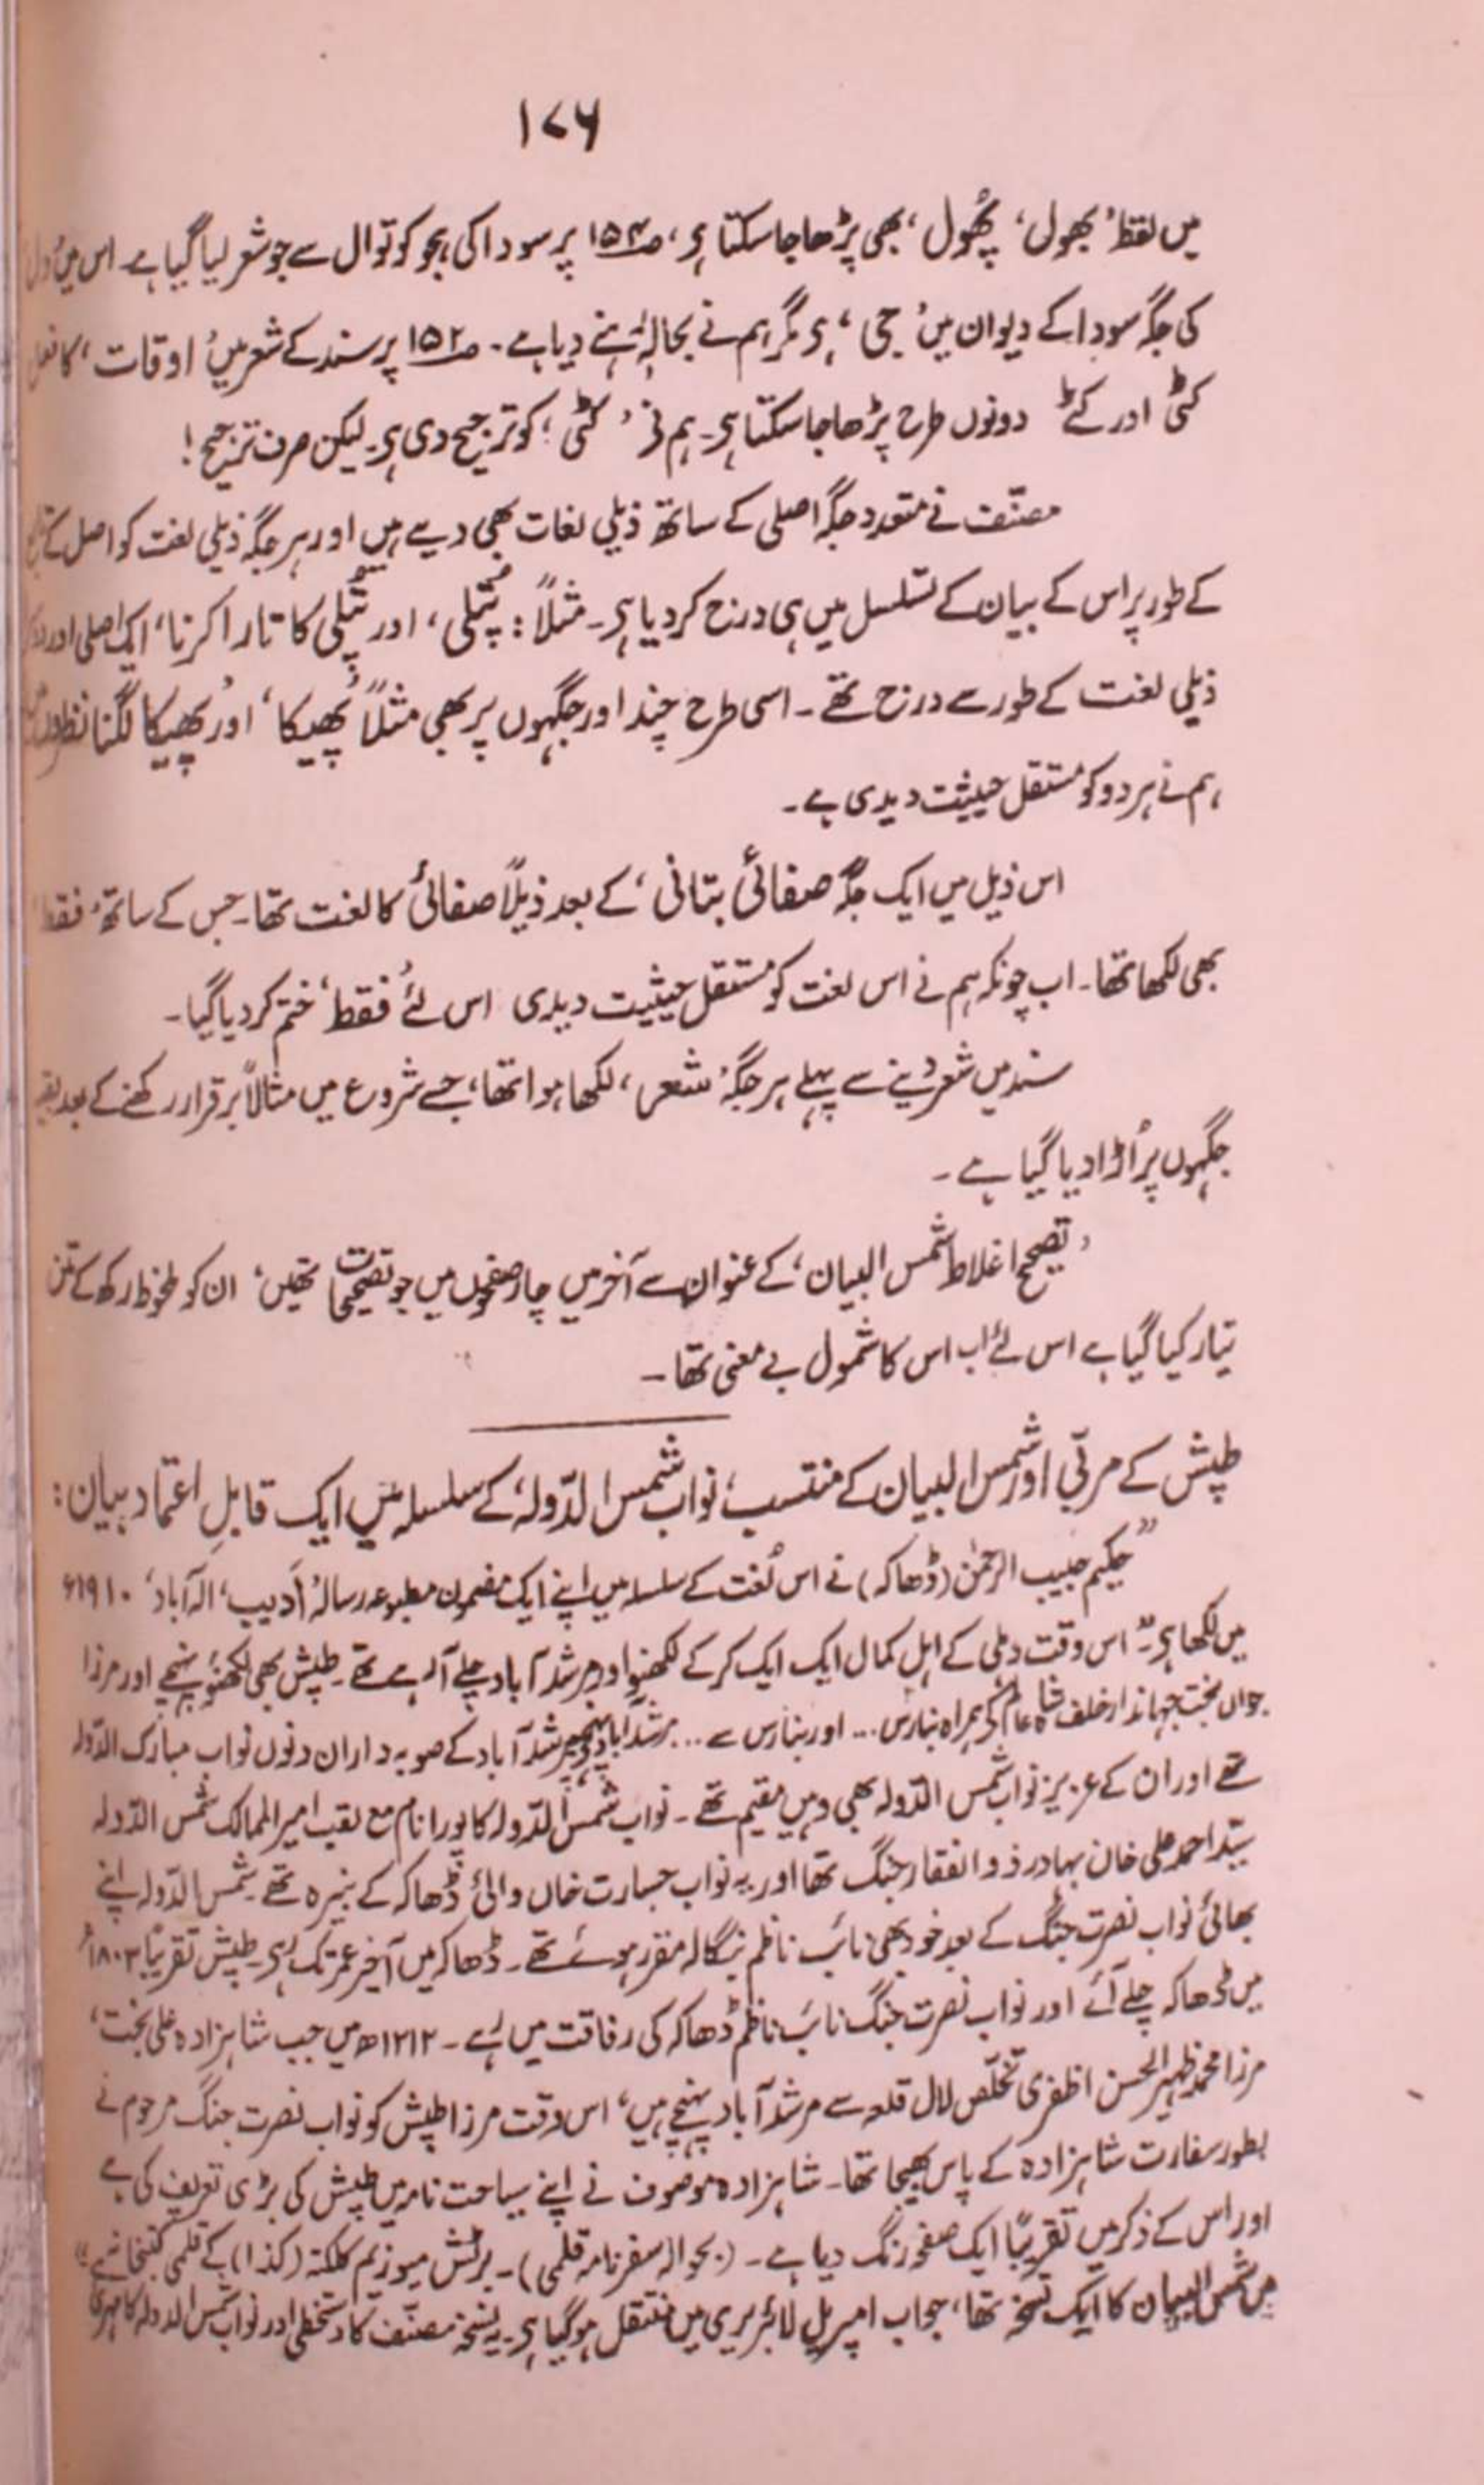 ۱۷۶
میں لفظ ’بھول‘ پھُول‘ بھی پڑھا جا سکتا ہی، صـ۱۵۴ پر سودا کی ہجو کوتوال سے جو شعر لیا گیا ہے۔ اس میں ’دل‘
کی جگہ سودا کے دیوان میں ’جی‘ ہی مگر ہم نے بحالہٖ رہنے دیا ہے۔ صـ۱۵۲ پر سند کے شعر میں ’اوقات‘ کا فعل
کٹی اور کٹے دونوں طرح پڑھا جا سکتا ہی۔ ہم نے ’کٹی‘ کو ترجیح دی ہی۔ لیکن صرف ترجیح!
مصنّف نے متعدد جگہ اصلی کے ساتھ ذیلی لغات بھی دیے ہیں اور ہر جگہ ذیلی لغت کو اصل کے تابع
کے طور پر اس کے بیان کے تسلسل میں ہی درج کر دیا ہی۔ مثلاً: پُتلی، اور پُتلی کا تارا کرنا، ایک اصلی اور
ذیلی لغت کے طور سے درج تھے۔ اسی طرح چند اور جگہوں پر بھی مثلاً ’پھیکا‘ اور ’پھیکا لگنا‘ نظر
ہم نے ہر دو کو مستقل حیثیت دیدی ہے۔
اس ذیل میں ایک جگہ صفائی بتانی‘ کے بعد ذیلاً صفائی کا لغت تھا۔ جس کے ساتھ ’فقط‘
بھی لکھا تھا۔ اب چونکہ ہم نے اس لغت کو مستقل حیثیت دیدی اس لئے ’فقط‘ ختم کر دیا گیا۔
سند میں شعر دینے سے پہلے ہر جگہ ’شعر‘ لکھا ہوا تھا، جسے شروع میں مثالاً برقرار رکھنے کے بعد بقیہ
جگہوں پر اُڑا دیا گیا ہے۔
’تصحیح اغلاط شمس البیان‘ کے عنوان سے آخر میں چار صفحوں میں جو تصحیحات تھیں‘ ان کو ملحوظ رکھ کے متن
تیار کیا گیا ہے اس لئے اب اس کا شمول بے معنی تھا۔
طپش کے مربّی اور شمس البیان کے منتسب، نواب شمس الدّولہ‘ کے سلسلہ میں ایک قابلِ اعتماد بیان:
”حکیم حبیب الرحمٰن (ڈھاکہ) نے اس لُغت کے سلسلہ میں اپنے ایک مضمون مطبوعہ رسالہ ’ادیب‘ الہ آباد‘ ۱۹۱۰ء
میں لکھا ہی: ”اس وقت دہلی کے اہلِ کمال ایک ایک کر کے لکھنؤ اور مرشد آباد چلے آ رہے تھے۔ طپش بھی لکھنؤ پہنچے اور مرزا
جواں بخت جہاندار خلف شاہ عالم کے ہمراہ بنارس... اور بنارس سے... مرشدآباد پہنچے۔ مرشد آباد کے صوبہ دار ان دنوں نواب مبارک الدّولہ
تھے اور ان کے عزیز نواب شمس الدّولہ بھی وہیں مقیم تھے۔ نواب شمس الدّولہ کا پورا نام مع لقب امیر الممالک شمس الدّولہ
سیّد احمد علی خان بہادر ذوالفقار جنگ تھا اور یہ نواب جسارت خاں والیٔ ڈھاکہ کے نبیرہ تھے۔ شمس الدّولہ اپنے
بھائی نواب نصرت جنگ کے بعد خود بھی نائب ناظم بنگالہ مقرر ہوئے تھے۔ ڈھاکہ میں آخر عمر تک رہی۔ طپش تقریباً ۱۸۰۳ء
میں ڈھاکہ چلے آئے اور نواب نصرت جنگ نائب ناظم ڈھاکہ کی رفاقت میں رہے۔ ۱۲۱۲ھ میں جب شاہزادہ علی بخت‘
مرزا محمد ظہیر الحسن اظفری تخلّص لال قلعہ سے مرشد آباد پہنچے ہیں‘ اس وقت مرزا طپش کو نواب نصرت جنگ مرحوم نے
بطور سفارت شاہزادہ کے پاس بھیجا تھا۔ شاہزادہ موصوف نے اپنے سیاحت نامہ میں طپش کی بڑی تعریف کی ہے
اور اس کے ذکر میں تقریباً ایک صفحہ رنگ دیا ہے۔ (بحوالہ سفرنامہ قلمی)۔ برٹش میوزیم کلکتہ (کذا) کے قلمی کتبخانے
میں شمس البیان کا ایک نسخہ تھا، جو اب امپریل لائبریری میں منتقل ہو گیا ہی۔ یہ نسخہ مصنّف کا دستخطی اور نواب شمس الدولہ کا مہری